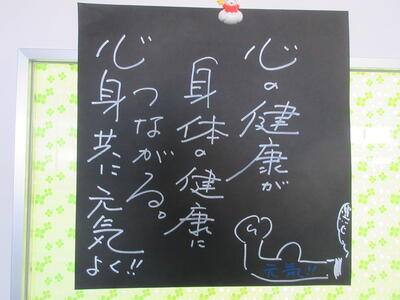 心の健康が
身体の健康に
つながる。
心身共に元気
よく!!
元気!!